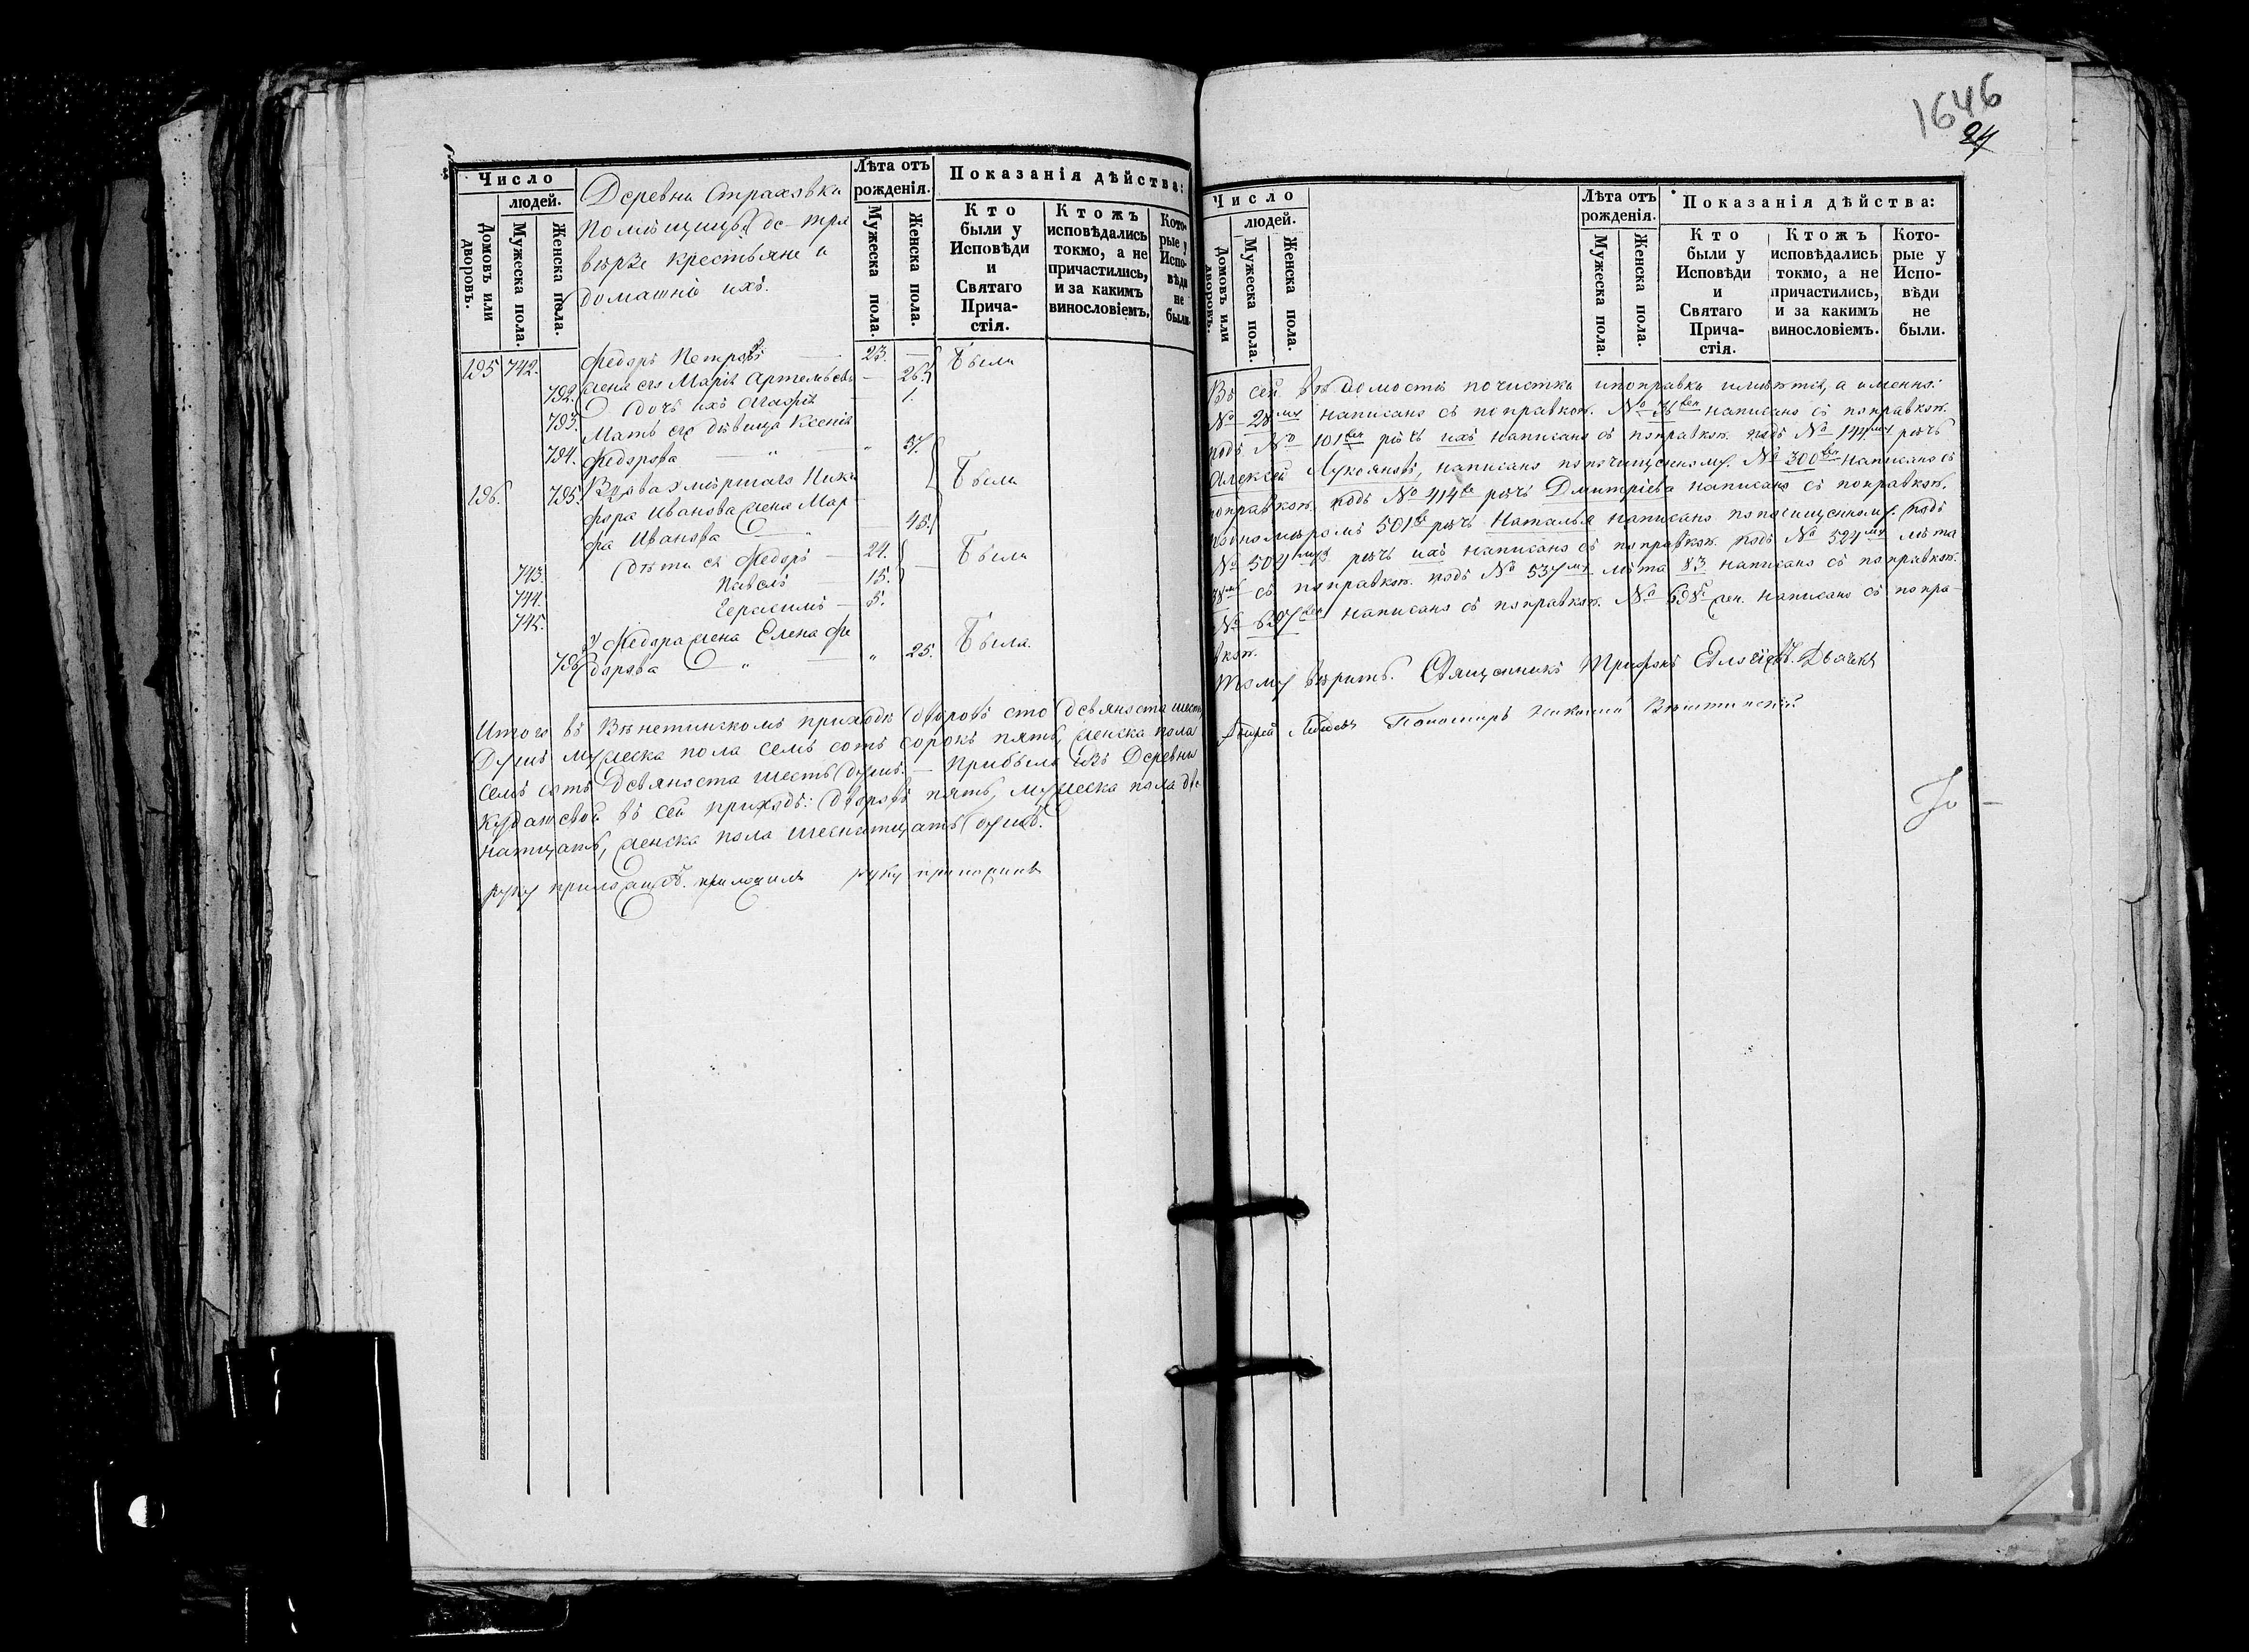 1646
24
Число
людей.
Домовъ или дворовъ.
Мужеска пола.
Женска пола.
Деревни Страховки
Помѣщицы де-тра
верзе крестьяне и
домашніе ихъ.
Лѣта отъ рожденія.
Мужеска пола.
Женска пола.
Показанія дѣйства:
Кто были у Исповѣди и Святаго Прича-стія.
Ктожъ исповѣдались токмо, а не причастились, и за какимъ винословіемъ.
Кото-рые у Испо-вѣди не были.
195 742. Федоръ Петровъ 23. Были
792. жена его Марія 26.
793. дочь ихъ 1.
Мать его дѣвица Ксенія
794. Федорова 37.
196. 795. Вдова умершаго Ники Были
фора Иванова жена Мар
фа Иванова 45.
743. дѣти ея Федоръ 24. Были
744. Павелъ 15.
745. Герасимъ 5.
у Федора жена Елена Фе
796. дорова 25. Была.
Итого въ Вѣнетинскомъ приходѣ дворовъ сто девяноста шесть
Душъ мужеска пола семь сотъ сорокъ пять, женска пола
семь сотъ девяноста шесть душъ. — Прибыли изъ Деревни
въ сей приходъ: дворовъ пять, мужеска пола две
натцать, женска пола шеснатцать душъ.
руку приложилъ. приложилъ руку приложилъ
Число
людей.
Домовъ или дворовъ.
Мужеска пола.
Женска пола.
Лѣта отъ рожденія.
Мужеска пола.
Женска пола.
Показанія дѣйства:
Кто были у Исповѣди и Святаго Прича-стія.
Ктожъ исповѣдались токмо, а не причастились, и за какимъ винословіемъ.
Кото-рые у Испо-вѣди не были.
Въ сей вѣдомости почистки и поправки имѣются, а именно:
№ 28му написано съ поправкою. № 76 написано съ поправкою.
подъ № 101 рѣчь ихъ написано съ поправкою. подъ № 144му рѣчь
Алексей Лукояновъ, написано по почищенному. № 300 написано съ
поправкою. подъ № 414 рѣчь Дмитріева написано съ поправкою.
подномѣромъ 501 рѣчь Наталья написано по почищенному. подъ
№ 504му рѣчь ихъ написано съ поправкою. подъ № 524му лѣта
съ поправкою. подъ № 537му лѣта 83 написано съ поправкою.
№ 637 написано съ поправкою. № 698 жен. написано съ попра
вкою.
тому вѣрить. Священникъ Трифонъ Дьячекъ
Андрей Лебедевъ Пономарь Николай